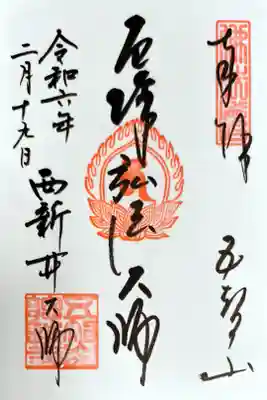 奉拝
五智山
厄除弘法大師
令和六年
二月十九日
西新井大師